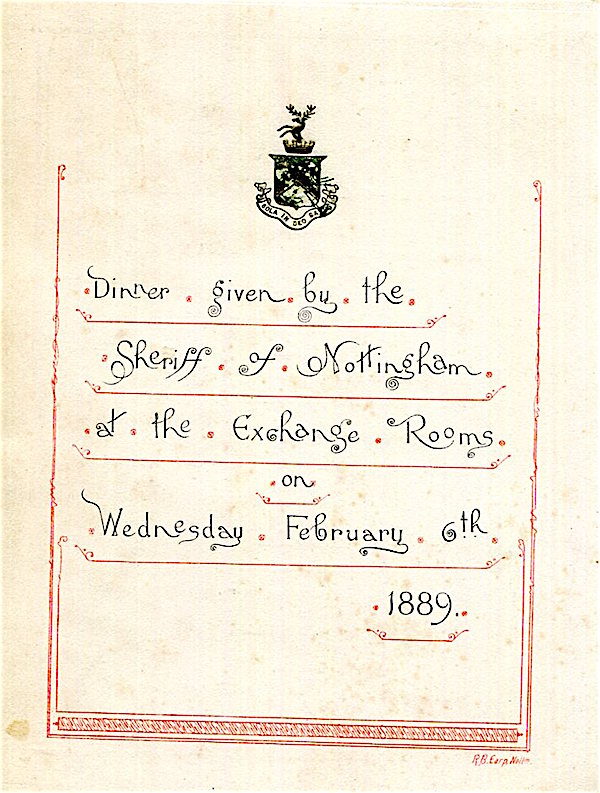 SOLA IN DEO SA
Dinner given by the
Sheriff of Nottingham
at the Exchange Rooms
on
Wednesday February 6th
1889.
R.B. Earp. Nottm.